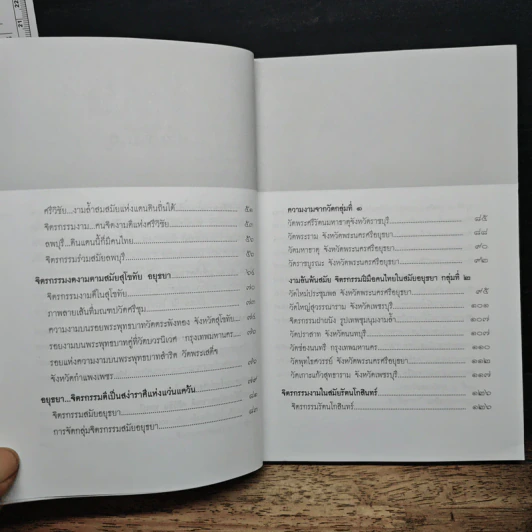 ศรีวิชัย...งานล้ำสมสมัยแห่งแดนดินถิ่นใต้ ๕๓
จิตรกรรมงาม...คนจิตงามดีแห่งศรีวิชัย
ลพบุรี...ดินแดนนี้ที่มีคนไทย
จิตรกรรมร่วมสมัยลพบุรี
จิตรกรรมงดงามตามสมัยสุโขทัย อยุธยา
จิตรกรรมงามดีในสุโขทัย ๗๐
ภาพลายเส้นที่มณฑปวัดศรีชุม ๗๓
ความงามบนรอยพระพุทธบาทวัดตระพังทอง จังหวัดสุโขทัย
รอยแห่งความงามบนพระพุทธบาทสำริด วัดพระเสด็จ
จังหวัดกำแพงเพชร
อยุธยา...จิตรกรรมดีเป็นสง่าราศีแห่งแว่นแคว้น ๗๙
จิตรกรรมสมัยอยุธยา ๘๑
การจัดกลุ่มจิตรกรรมสมัยอยุธยา ๘๓
ความงามจากวัดกลุ่มที่ ๑
วัดพระศรีรัตนมหาธาตุจังหวัดราชบุรี ๘๕
วัดพระราม จังหวัดพระนครศรีอยุธยา ๘๘
วัดมหาธาตุ จังหวัดพระนครศรีอยุธยา ๙๐
วัดราชบูรณะ จังหวัดพระนครศรีอยุธยา ๙๒
งามอันพันสมัย จิตรกรรมฝีมือคนไทยในสมัยอยุธยา กลุ่มที่ ๒
วัดใหม่ประชุมพล จังหวัดพระนครศรีอยุธยา ๙๕
วัดใหญ่สุวรรณาราม จังหวัดเพชรบุรี ๑๐๑
รูปเทพชุมนุมงามล้ำ ๑๐๓
วัดปราสาท จังหวัดนนทบุรี ๑๐๗
วัดช่องนนทรี กรุงเทพมหานคร
วัดพุทไธศวรรย์ จังหวัดพระนครศรีอยุธยา ๑๑๒
วัดเกาะแก้วสุทธาราม จังหวัดเพชรบุรี ๑๑๗
จิตรกรรมงามในสมัยรัตนโกสินทร์
จิตรกรรมรัตนโกสินทร์